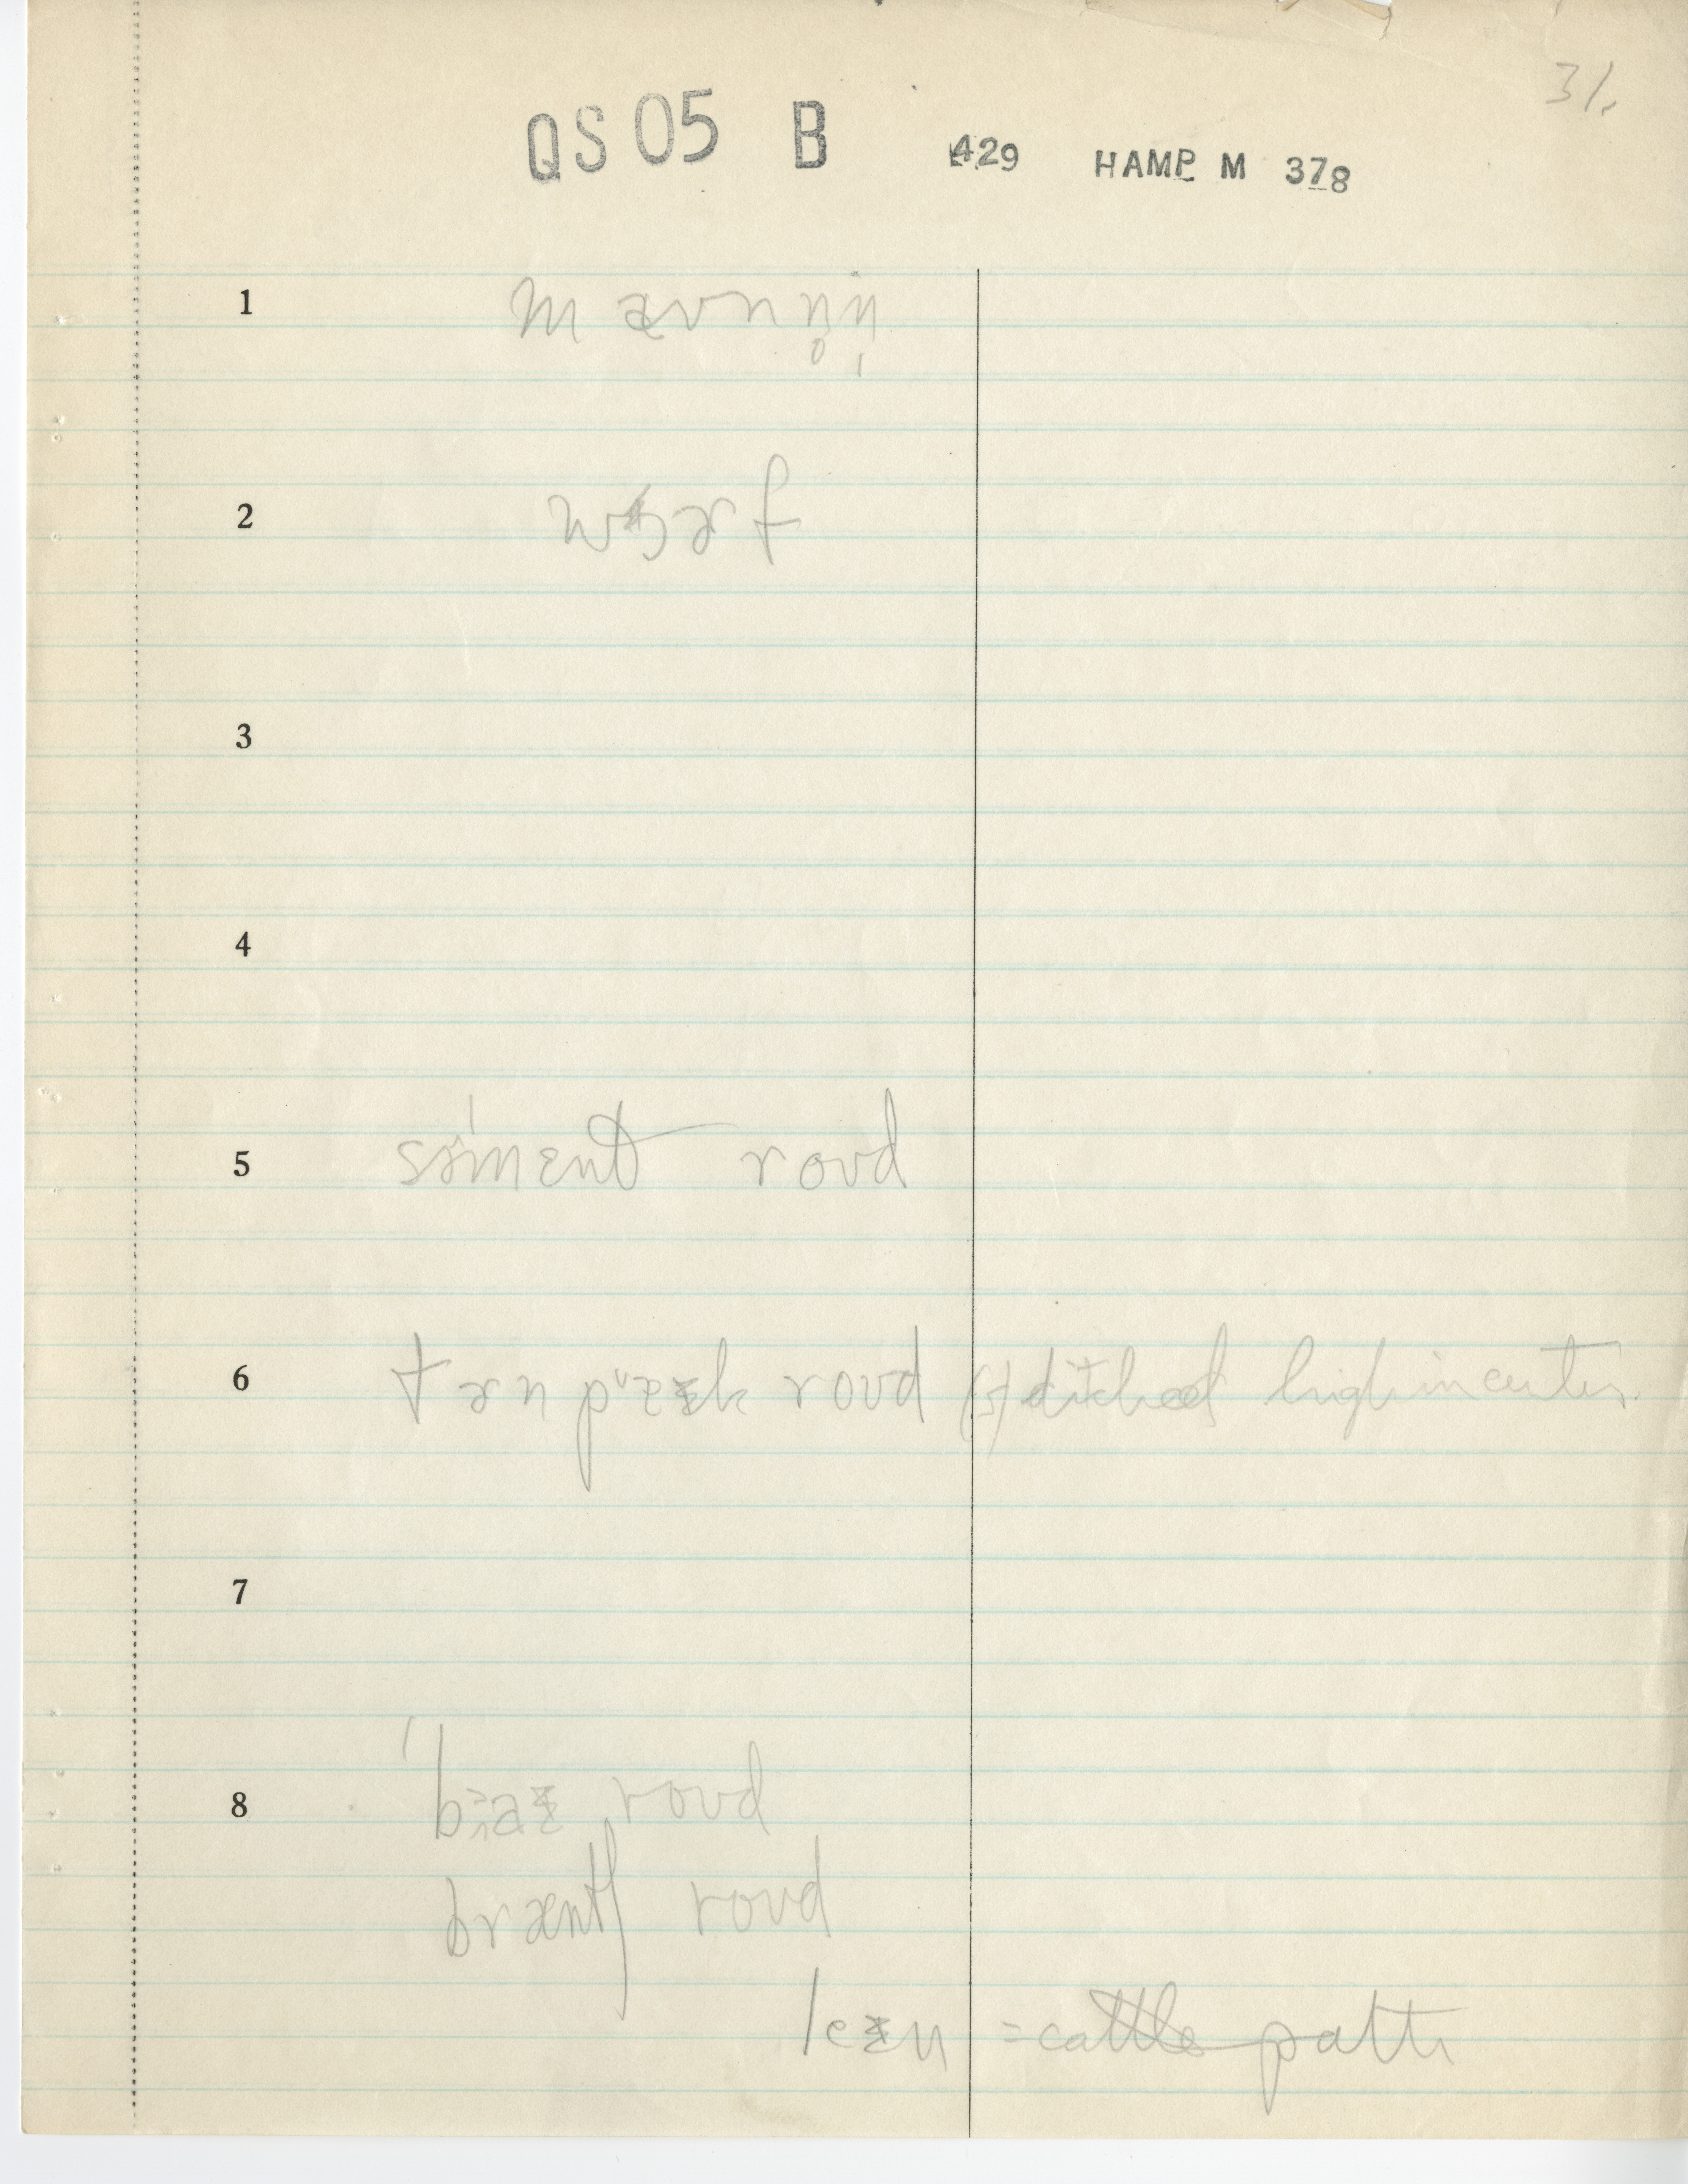 31.
QS05 B 429 HAMP M 378
1 mæʊnn̥n̩
2 wɔɚf
3
4
5 səˈmɛnt roʊd
6 tɚnpɐɪk roʊd (s) ditched high in center.
7
8 roʊd
bræntʃ roʊd
leɪn = cattle path